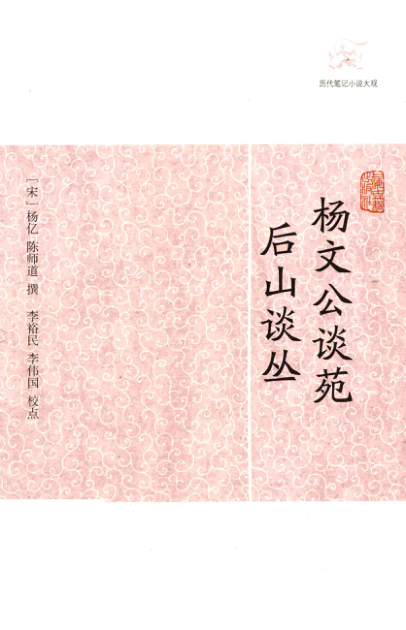 历代笔记小说大观
杨文公谈苑
后山谈丛
［宋］杨亿 陈师道 撰 李裕民 李伟国 校点